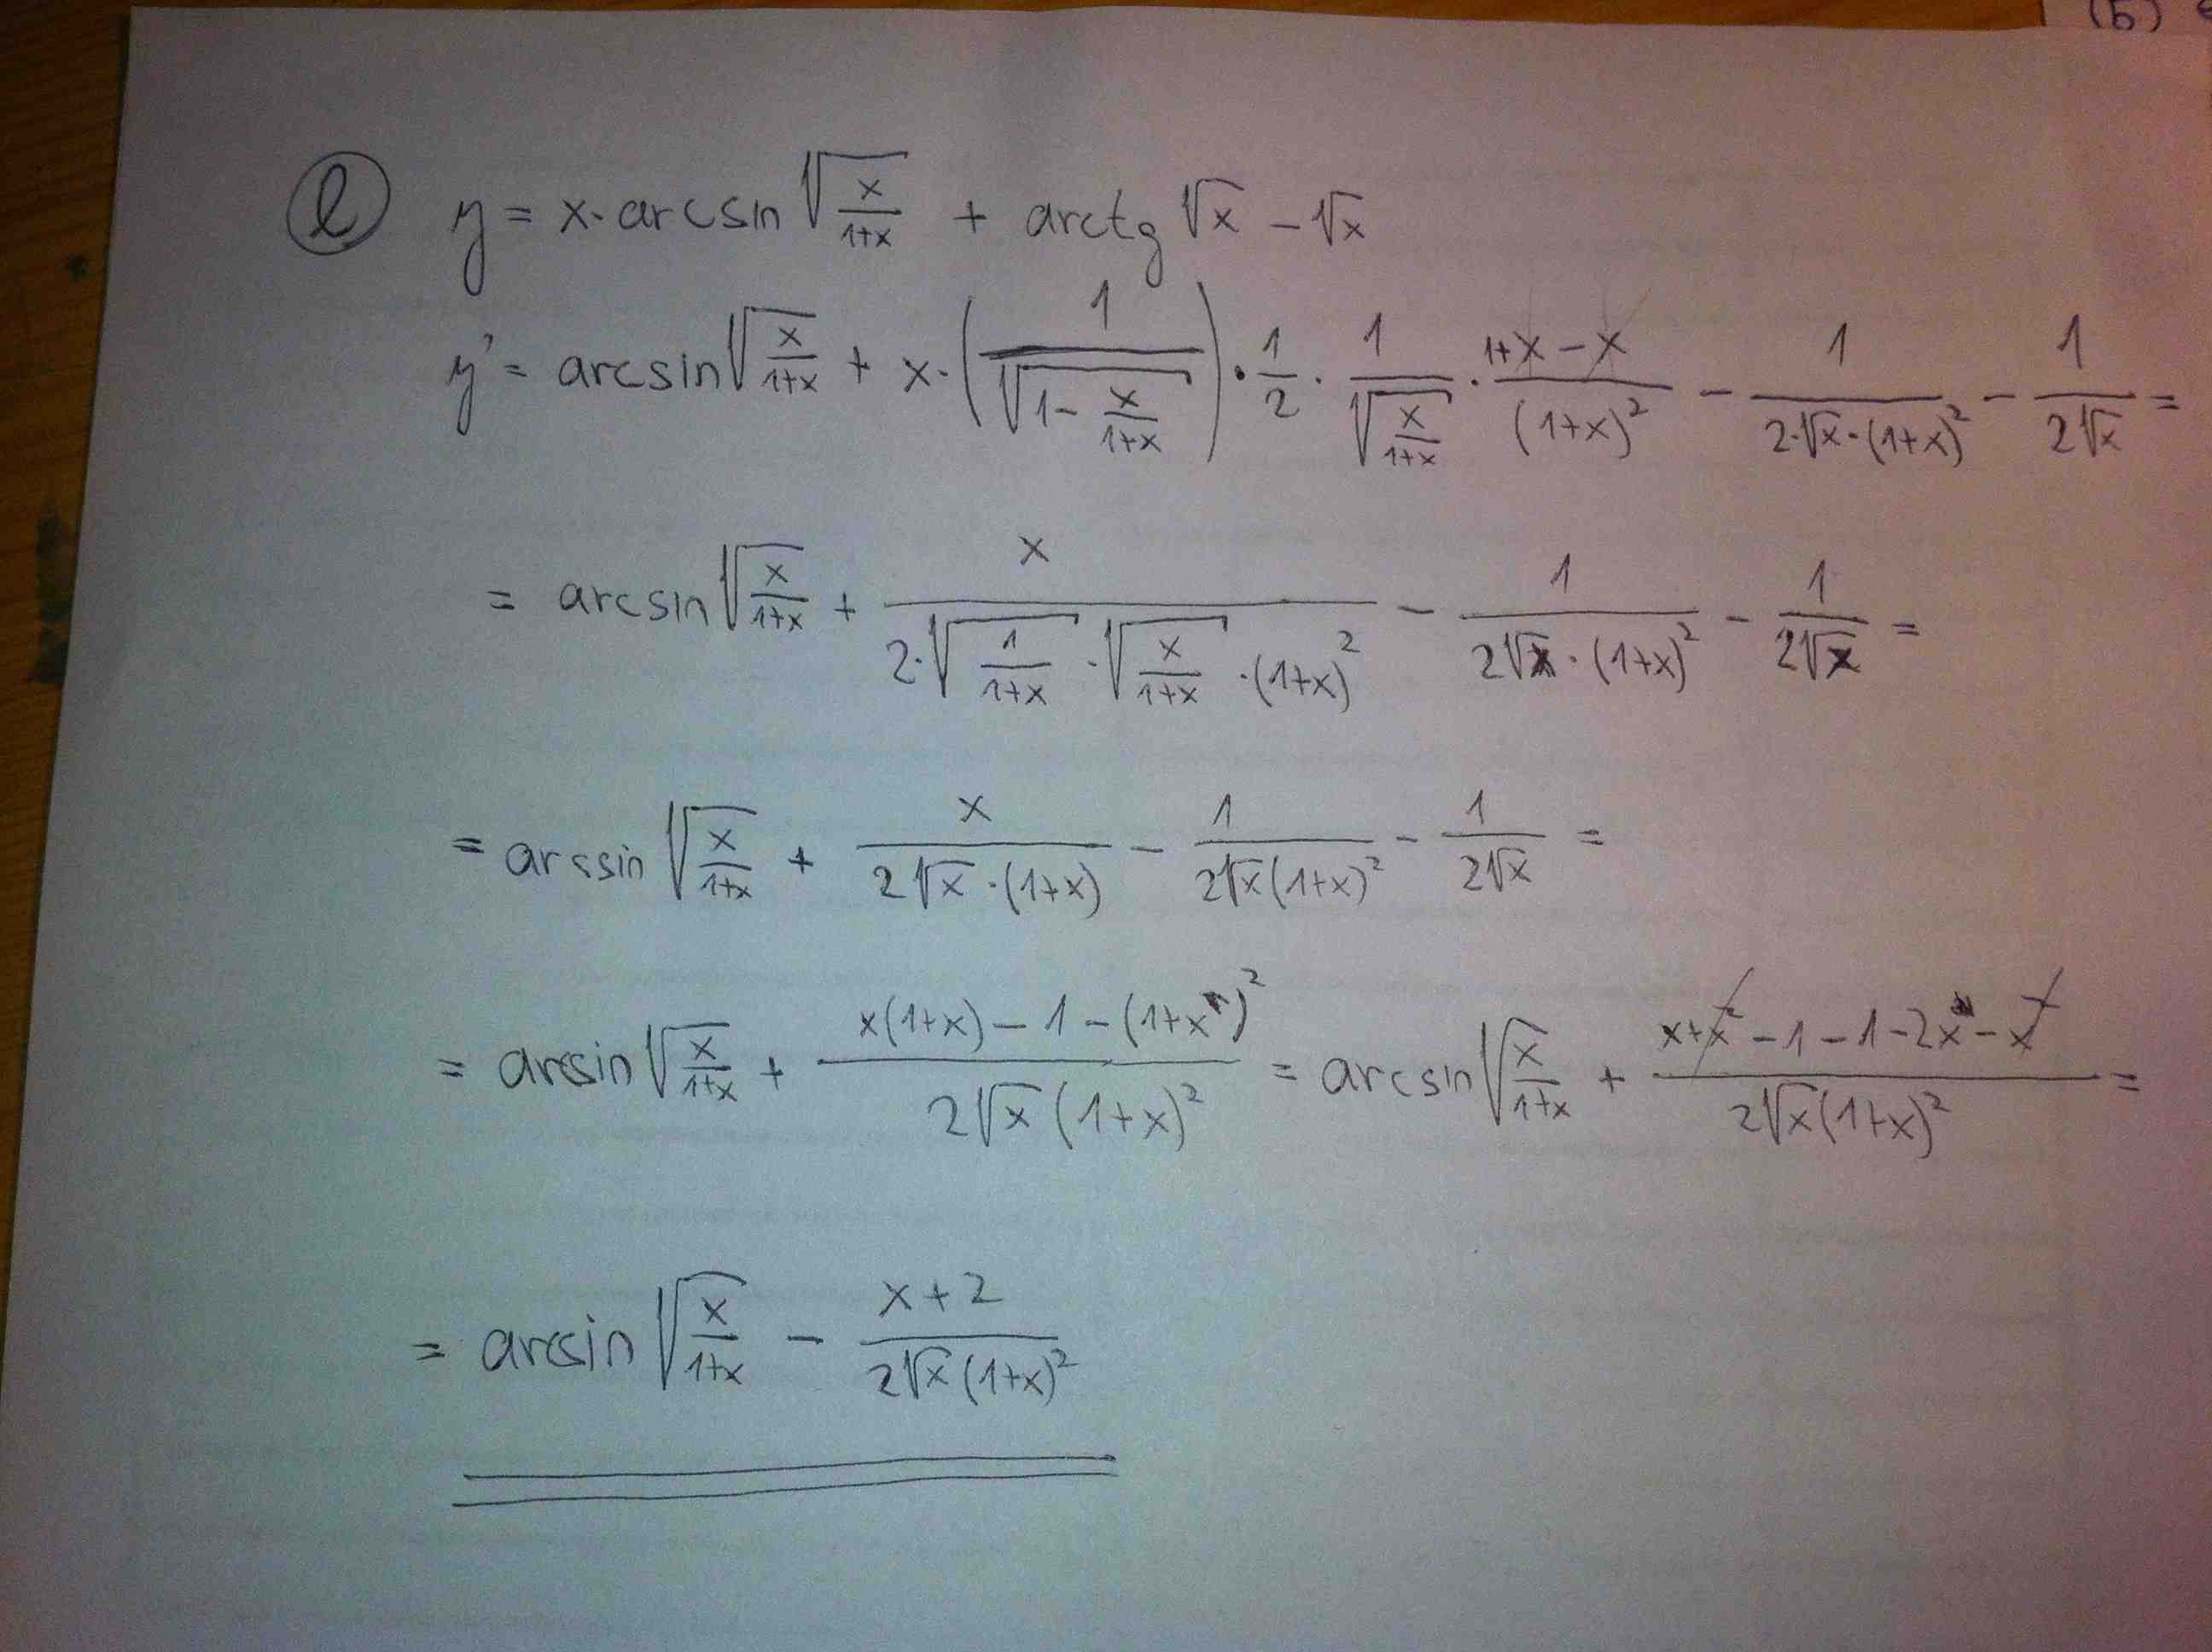 (b)
ⓛ y = x·arcsin √(x/(1+x)) + arctg √x − √x
y' = arcsin √(x/(1+x)) + x·(1/√(1 − x/(1+x)))·1/2·1/√(x/(1+x))·(1+x−x)/(1+x)² − 1/(2·√x·(1+x)²) − 1/(2√x) =
= arcsin √(x/(1+x)) + x/(2·√(1/(1+x))·√(x/(1+x))·(1+x)²) − 1/(2√x·(1+x)²) − 1/(2√x) =
= arssin √(x/(1+x)) + x/(2√x·(1+x)) − 1/(2√x(1+x)²) − 1/(2√x) =
= arcsin √(x/(1+x)) + (x(1+x) − 1 − (1+x)²)/(2√x(1+x)²) = arcsin √(x/(1+x)) + (x+x² − 1 − 1 − 2x − x²)/(2√x(1+x)²) =
= arcsin √(x/(1+x)) − (x+2)/(2√x(1+x)²)